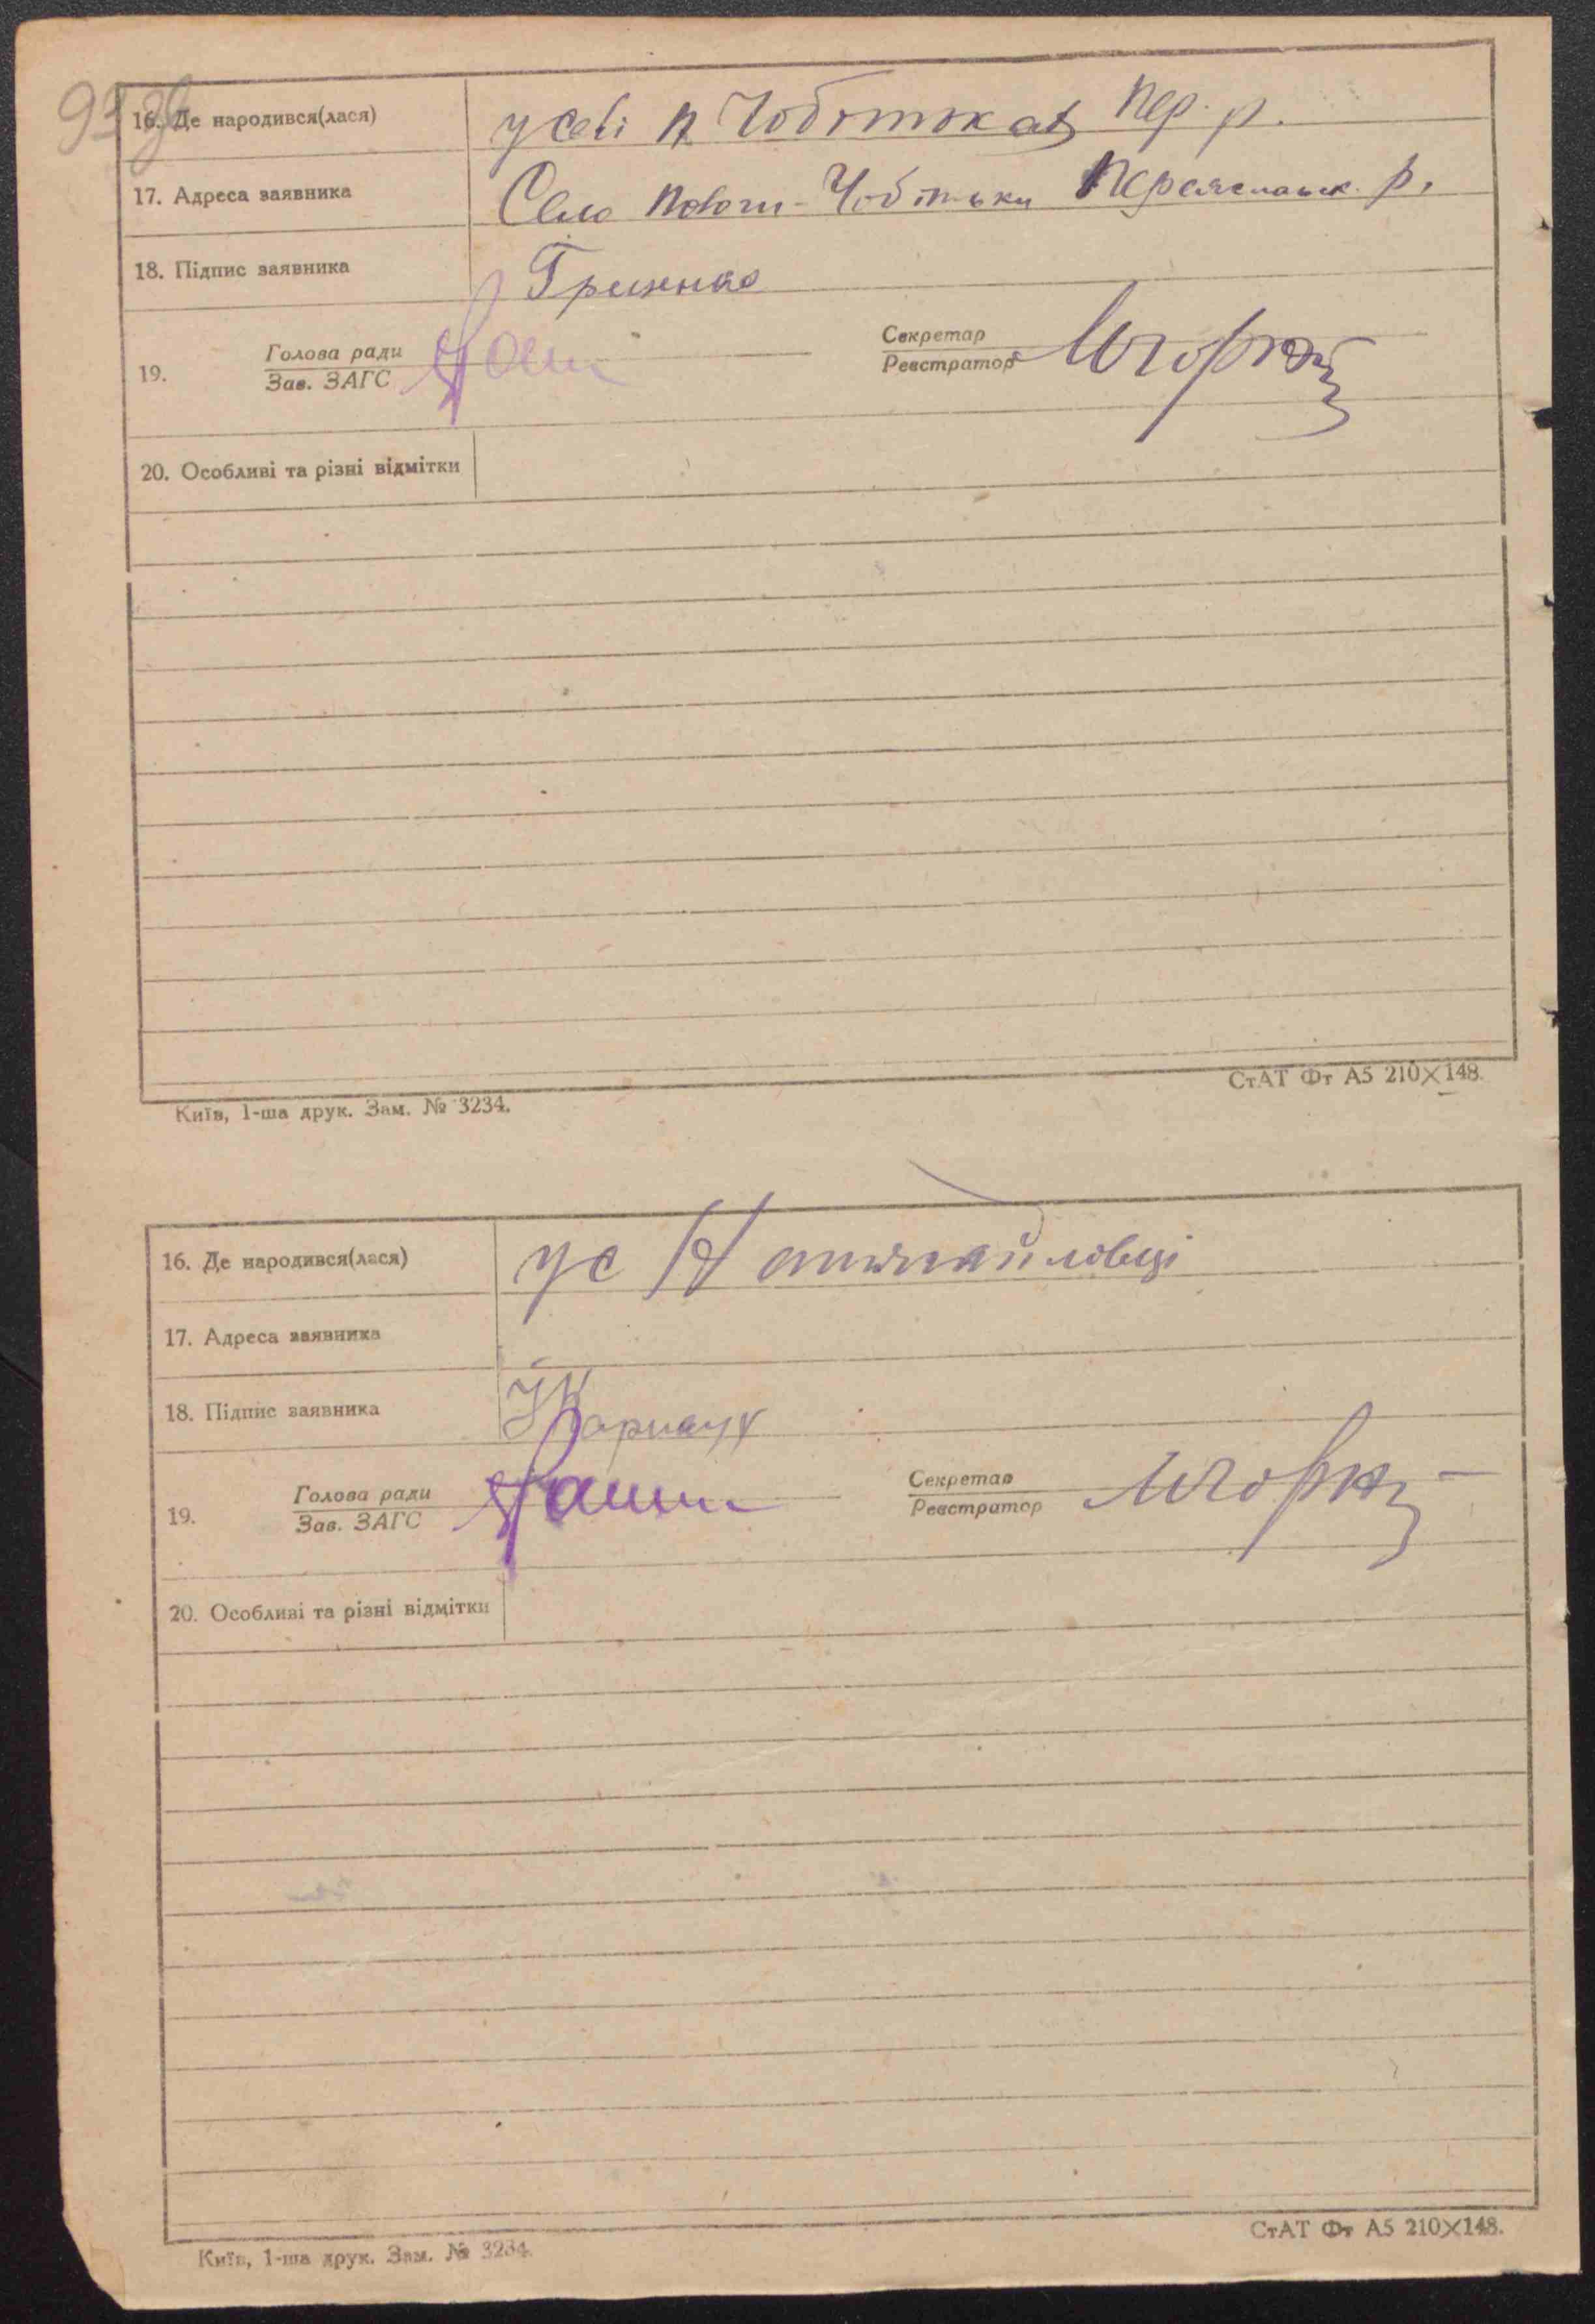 16. Де народився(лася) у селі П Чобітьках Пер. р.
17. Адреса заявника Село Пологи-Чобітьки Переяславськ. р.
18. Підпис заявника
19. Голова ради Секретар
Зав. ЗАГС Реєстратор
20. Особливі та різні відмітки
СтАТ Фт А5 210×148.
Київ, 1-ша друк. Зам. № 3234.
16. Де народився(лася) у с
17. Адреса заявника
18. Підпис заявника Карнаух
19. Голова ради Секретар
Зав. ЗАГС Реєстратор
20. Особливі та різні відмітки
СтАТ Фт А5 210×148.
Київ, 1-ша друк. Зам. № 3234.